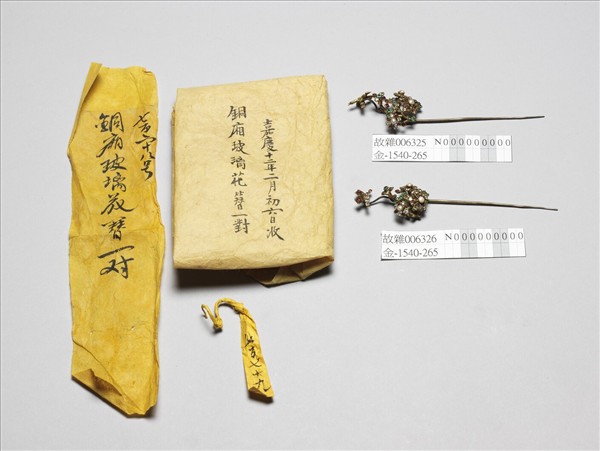 銅廂玻璃花簪一对
嘉慶十三年二月初六日收
銅廂玻璃花簪一對
故雜006325 N000000000
金-1540-265
故雜006326 N000000000
金-1540-265